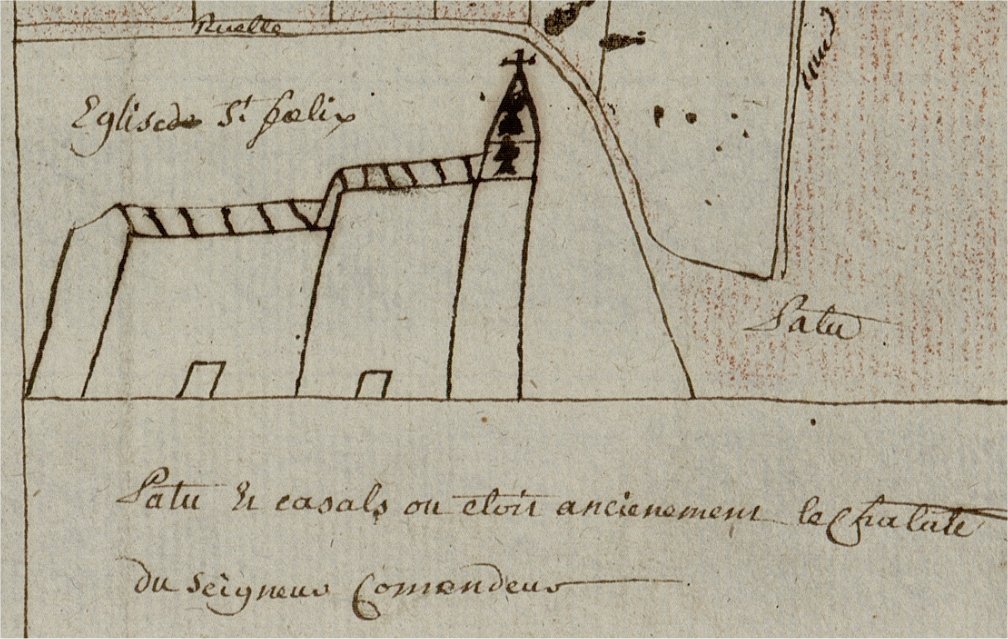 Ruelle
mur
Eglise de St fœlix
Patu
Patu Et casals ou etoit ancienement le
du seigneur Comandeur